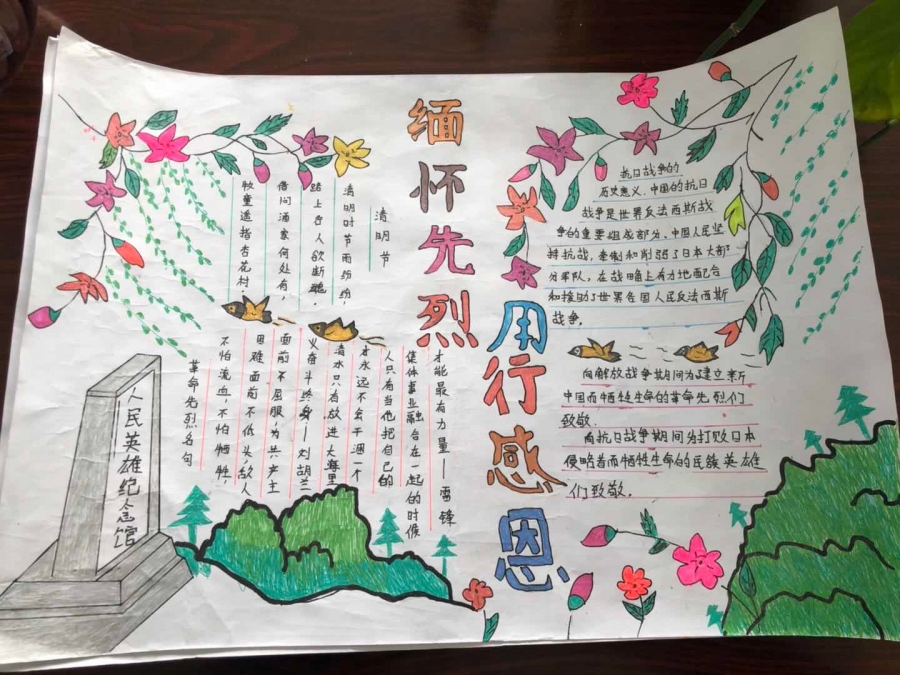 缅怀先烈
用行感恩
清明节
清明时节雨纷纷,
路上行人欲断魂。
借问酒家何处有,
牧童遥指杏花村.
革命先烈名句
不怕流血,不怕牺牲,
困难面前不低头敌人
面前不屈服,为共产主
义奋斗终身——刘胡兰
清水只有放进大海里
才永远不会干涸一个
人只有当他把自己的
集体事业融合在一起的时候
才能最有力量——雷锋
人民英雄纪念馆
抗日战争的
历史意义,中国的抗日
战争是世界反法西斯战
争的重要组成部分,中国人民坚
持抗战,牵制和削弱了日本大部
分军队,在战略上有力地配合
和援助了世界各国人民反法西斯
战争。
向解放战争期间为了建立新
中国而牺牲生命的革命先烈们
致敬.
向抗日战争期间为打败日本
侵略者而牺牲生命的民族英雄
们致敬.